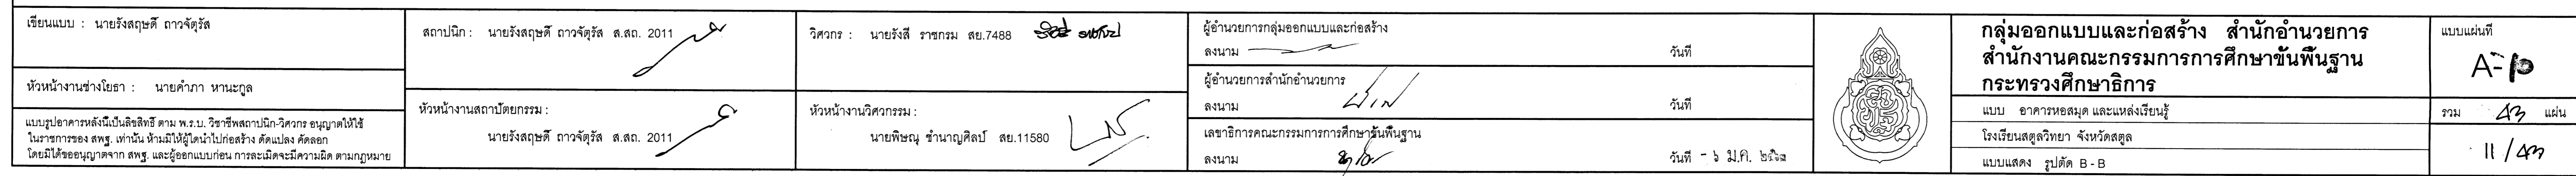 เขียนแบบ : นายรังสฤษดิ์ ถาวจัตุรัส
หัวหน้างานช่างโยธา : นายคำภา หานะกูล
แบบรูปอาคารหลังนี้เป็นลิขสิทธิ์ ตาม พ.ร.บ. วิชาชีพสถาปนิก-วิศวกร อนุญาตให้ใช้
ในราชการของ สพฐ. เท่านั้น ห้ามมิให้ผู้ใดนำไปก่อสร้าง ดัดแปลง คัดลอก
โดยมิได้ขออนุญาตจาก สพฐ. และผู้ออกแบบก่อน การละเมิดจะมีความผิด ตามกฎหมาย
สถาปนิก : นายรังสฤษดิ์ ถาวจัตุรัส ส.สถ. 2011
หัวหน้างานสถาปัตยกรรม :
นายรังสฤษดิ์ ถาวจัตุรัส ส.สถ. 2011
วิศวกร : นายรังสี ราชกรม สย.7488
หัวหน้างานวิศวกรรม :
นายพิษณุ ชำนาญศิลป์ สย.11580
ผู้อำนวยการกลุ่มออกแบบและก่อสร้าง
ลงนาม วันที่
ผู้อำนวยการสำนักอำนวยการ
ลงนาม วันที่
เลขาธิการคณะกรรมการการศึกษาขั้นพื้นฐาน
ลงนาม วันที่ - ๖ ม.ค.
กลุ่มออกแบบและก่อสร้าง สำนักอำนวยการ
สำนักงานคณะกรรมการการศึกษาขั้นพื้นฐาน
กระทรวงศึกษาธิการ
แบบ อาคารหอสมุด และแหล่งเรียนรู้
โรงเรียนสตูลวิทยา จังหวัดสตูล
แบบแสดง รูปตัด B - B
แบบแผ่นที่
รวม ๔๓ แผ่น
11/๔๓